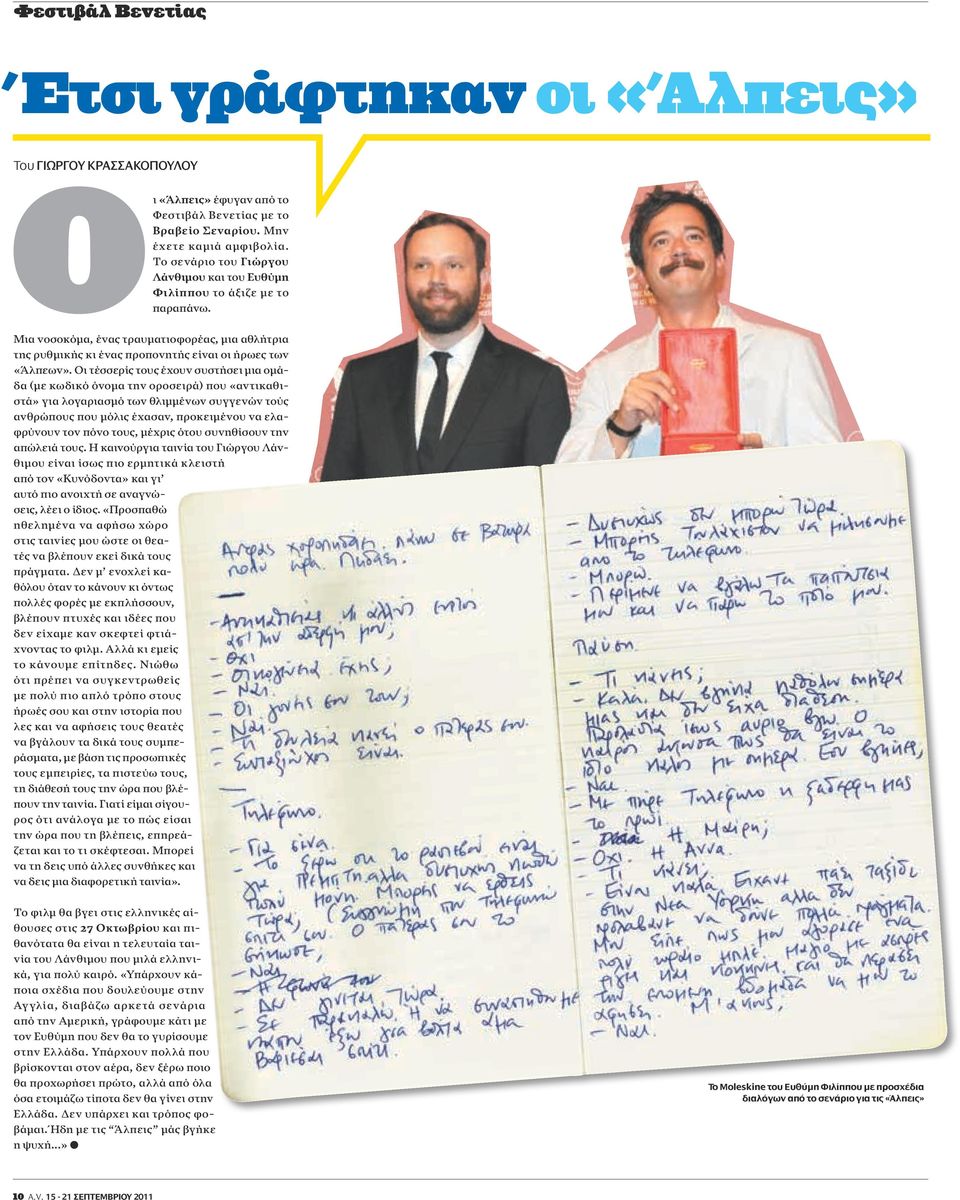 Φεστιβάλ Βενετίας
Έτσι γράφτηκαν οι «Άλπεις»
Του ΓΙΩΡΓΟΥ ΚΡΑΣΣΑΚΟΠΟΥΛΟΥ
Ο
ι «Άλπεις» έφυγαν από το
Φεστιβάλ Βενετίας με το
Βραβείο Σεναρίου. Μην
έχετε καμιά αμφιβολία.
Το σενάριο του Γιώργου
Λάνθιμου και του Ευθύμη
Φιλίππου το άξιζε με το
παραπάνω.
Μια νοσοκόμα, ένας τραυματιοφορέας, μια αθλήτρια
της ρυθμικής κι ένας προπονητής είναι οι ήρωες των
«Άλπεων». Οι τέσσερίς τους έχουν συστήσει μια ομά-
δα (με κωδικό όνομα την οροσειρά) που «αντικαθι-
στά» για λογαριασμό των θλιμμένων συγγενών τούς
ανθρώπους που μόλις έχασαν, προκειμένου να ελα-
φρύνουν τον πόνο τους, μέχρις ότου συνηθίσουν την
απώλειά τους. Η καινούργια ταινία του Γιώργου Λάν-
θιμου είναι ίσως πιο ερμητικά κλειστή
από τον «Κυνόδοντα» και γι’
αυτό πιο ανοιχτή σε αναγνώ-
σεις, λέει ο ίδιος. «Προσπαθώ
ηθελημένα να αφήσω χώρο
στις ταινίες μου ώστε οι θεα-
τές να βλέπουν εκεί δικά τους
πράγματα. Δεν μ’ ενοχλεί κα-
θόλου όταν το κάνουν κι όντως
πολλές φορές με εκπλήσσουν,
βλέπουν πτυχές και ιδέες που
δεν είχαμε καν σκεφτεί φτιά-
χνοντας το φιλμ. Αλλά κι εμείς
το κάνουμε επίτηδες. Νιώθω
ότι πρέπει να συγκεντρωθείς
με πολύ πιο απλό τρόπο στους
ήρωές σου και στην ιστορία που
λες και να αφήσεις τους θεατές
να βγάλουν τα δικά τους συμπε-
ράσματα, με βάση τις προσωπικές
τους εμπειρίες, τα πιστεύω τους,
τη διάθεσή τους την ώρα που βλέ-
πουν την ταινία. Γιατί είμαι σίγου-
ρος ότι ανάλογα με το πώς είσαι
την ώρα που τη βλέπεις, επηρεά-
ζεται και το τι σκέφτεσαι. Μπορεί
να τη δεις υπό άλλες συνθήκες και
να δεις μια διαφορετική ταινία».
Το φιλμ θα βγει στις ελληνικές αί-
θουσες στις 27 Οκτωβρίου και πι-
θανότατα θα είναι η τελευταία ται-
νία του Λάνθιμου που μιλά ελληνι-
κά, για πολύ καιρό. «Υπάρχουν κά-
ποια σχέδια που δουλεύουμε στην
Αγγλία, διαβάζω αρκετά σενάρια
από την Αμερική, γράφουμε κάτι με
τον Ευθύμη που δεν θα το γυρίσουμε
στην Ελλάδα. Υπάρχουν πολλά που
βρίσκονται στον αέρα, δεν ξέρω ποιο
θα προχωρήσει πρώτο, αλλά από όλα
όσα ετοιμάζω τίποτα δεν θα γίνει στην
Ελλάδα. Δεν υπάρχει και τρόπος φο-
βάμαι. Ήδη με τις “Άλπεις” μάς βγήκε
η ψυχή...»
Αντρας χοροπηδάει πάνω σε βατήρα
πολύ ώρα. Πηδάει.
- Αντικαθιστάς κι άλλον εκτός
απ' την αδερφή μου;
- Οχι
- Οικογένεια έχεις;
- Ναι.
- Οι γονείς σου ζουν;
- Ναι.
- Τι δουλειά κάνει ο πατέρας σου.
- Συνταξιούχος είναι.
Τηλέφωνο.
- Για σένα.
- Το ξέρω οτι το ραντεβού είναι
για Πέμπτη αλλα δυστυχώς νιώθω
πολύ μόνη. Μπορείς να έρθεις
τώρα; (Συγγνώμη που τηλεφωνώ
σπίτι σου. Ο πατέρας σου το
σήκωσε;
- Ναι
- Δεν γίνεται τώρα.
- Σε παρακαλώ. Η να συναντηθούμε
έξω για βόλτα άμα
βαριέσαι σπίτι.
- Δυστυχώς δεν μπορώ τώρα.
- Μπορείς τουλάχιστον να μιλήσουμε
απο το τηλέφωνο.
- Μπορώ.
- Περίμενε να βγάλω τα παπούτσια
μου και να πάρω το πιάτο μου.
Παύση
- Τι κάνεις;
- Καλά. Δεν βγήκα καθόλου σήμερα
μιας και δεν είχα διάθεση.
Παρολαυτα ισως αυριο βγω. Ο
καιρός άκουσα πως θα είναι το
ίδιο καλος με σήμερα. Εσυ βγήκες;
- Ναι.
- Με πήρε τηλέφωνο η ξαδερφη μας
το πρωί.
- Η Μαίρη;
- Οχι. Η Αννα.
- Τι κάνει;
- Είναι καλά. Είχαν πάει ταξίδι
στην Νεα Υόρκη αλλα δεν
πρόλαβαν να δουνε πολλα πράγματα.
Μου είπε πως μου αγόρασε ενα
πολυ ωραίο μπλε μαγιο με ασπρες
ριγες και θα περάσει
την επομενη βδομάδα να μου το
αφησει. Μ' ακους;
- Ναι.
Το Moleskine του Ευθύμη Φιλίππου με προσχέδια
διαλόγων από το σενάριο για τις «Άλπεις»
10 A.V. 15 - 21 ΣΕΠΤΕΜΒΡΙΟΥ 2011